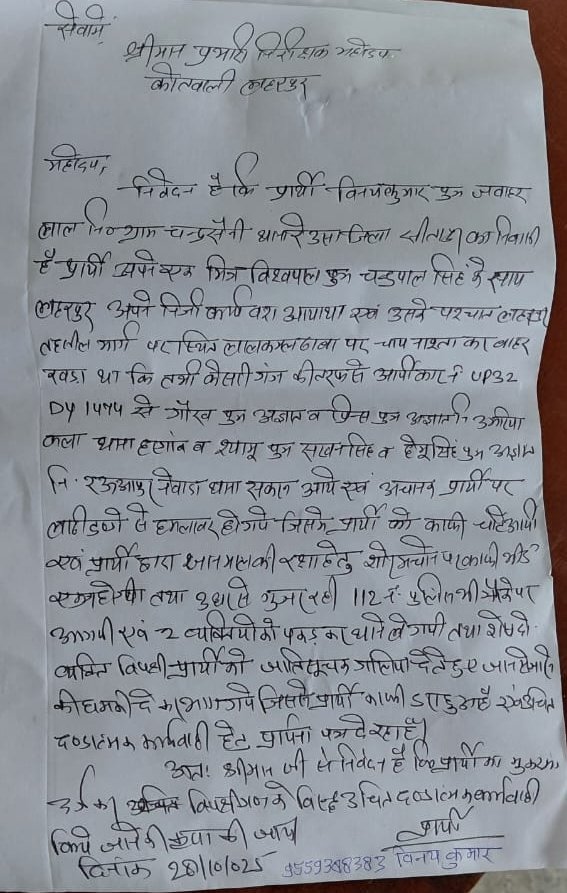 सेवामें,
श्रीमान प्रभारी निरीक्षक महोदय
कोतवाली लहरपुर
महोदय,
निवेदन है कि प्रार्थी विनयकुमार पुत्र जवाहर
लाल नि० ग्राम चन्द्रसेनी थाना रेउसा जिला सीतापुर का निवासी
है प्रार्थी अपने एक मित्र विश्वपाल पुत्र चन्द्रपाल सिंह के साथ
लहरपुर अपने निजी कार्य वश आया था एवं उसके पश्चात लहरपुर
तहसील मार्ग पर स्थित लालकमल ढाबा पर चाय नाश्ता कर बाहर
खडा था कि तभी केसरी गंज की तरफ से आयी कार नं UP32
DY 1474 से गौरव पुत्र अज्ञात व प्रिन्स पुत्र अज्ञात नि.
कला थाना व श्यामू पुत्र सिंह व सिंह पुत्र अज्ञात
नि. नेवादा थाना सकरन आये एवं अचानक प्रार्थी पर
लाठी डण्डो से हमलावर हो गये जिससे प्रार्थी को काफी चोटे आयी
एवं प्रार्थी द्वारा जानमाल की रक्षा हेतु शोर मचाने पर काफी भीड
एकत्र हो गयी तथा उधर से गुजर रही 112 नं. पुलिस भी मौके पर
आ गयी एवं 2 व्यक्तियो को पकड कर थाने ले गयी तथा शेष दो
व्यक्ति विपक्षी प्रार्थी को जातिसूचक गालियां देते हुए जान से मारने
की धमकी दे कर भाग गये जिससे प्रार्थी काफी डरा हुआ है एवं उचित
दण्डात्मक कार्यवाही हेतु प्रार्थना पत्र दे रहा है।
अतः श्रीमान जी से निवेदन है कि प्रार्थी का मुकदमा
दर्ज कर विपक्षीगण के विरूद्ध उचित दण्डात्मक कार्यवाही
किये जाने की कृपा की जाय
प्रार्थी
दिनांक 28/10/025 9559348383 विनय कुमार